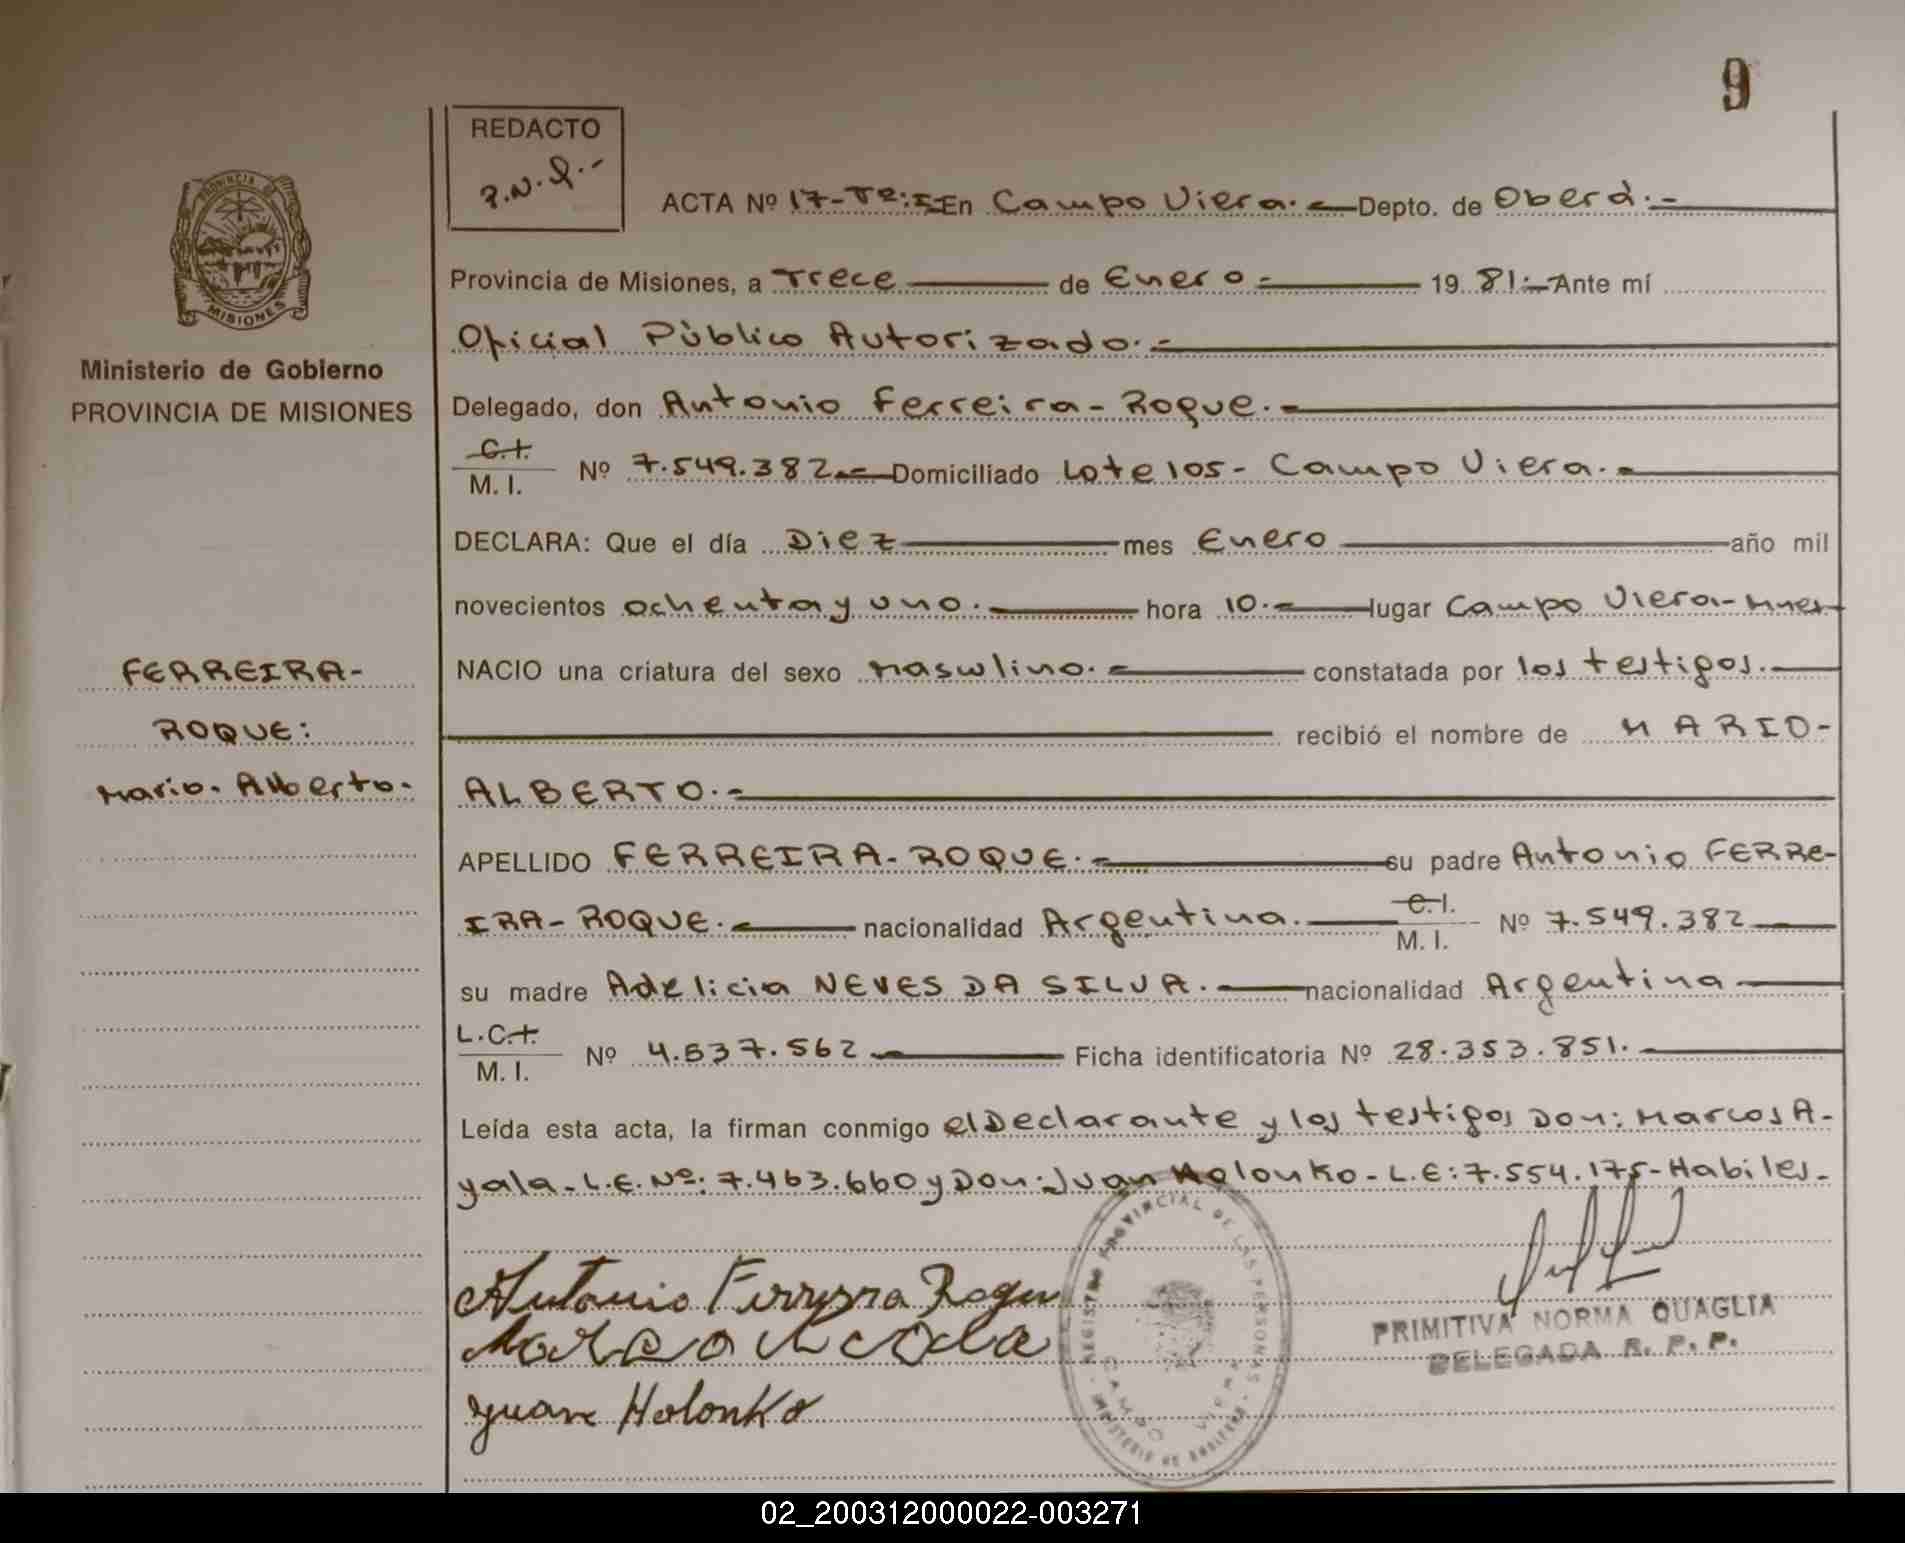 9
REDACTO
P.N.Q.-
PROVINCIA DE
MISIONES
Ministerio de Gobierno
PROVINCIA DE MISIONES
FERREIRA-
ROQUE:
Mario. Alberto.
ACTA Nº 17-Tº:I En Campo Viera.- Depto. de Oberá.-
Provincia de Misiones, a Trece de Enero.- 19 81.- Ante mí
Oficial Público Autorizado.-
Delegado, don Antonio Ferreira-Roque.-
C.I.
M. I. Nº 7.549.382.- Domiciliado Lote 105- Campo Viera.-
DECLARA: Que el día Diez mes Enero año mil
novecientos ochenta y uno.- hora 10.- lugar Campo Viera-Mnes-
NACIO una criatura del sexo Masculino.- constatada por los testigos.-
recibió el nombre de MARIO-
ALBERTO.-
APELLIDO FERREIRA-ROQUE.- su padre Antonio FERRE-
IRA-ROQUE.- nacionalidad Argentina.- C.I.
M. I. Nº 7.549.382
su madre Adelicia NEVES DA SILVA.- nacionalidad Argentina
L.C.I.
M. I. Nº 4.537.562 Ficha identificatoria Nº 28.353.851.-
Leída esta acta, la firman conmigo el Declarante y los testigos Don: Marcos A-
yala-L.E.Nº: 7.463.660 y Don: Juan Holonko-L.E: 7.554.175-Habiles-
Antonio Ferryrra Roque
Juan Holonko
REGISTRO PROVINCIAL DE LAS PERSONAS
CAMPO VIERA
PRIMITIVA NORMA QUAGLIA
DELEGADA R. P. P.
02_200312000022-003271